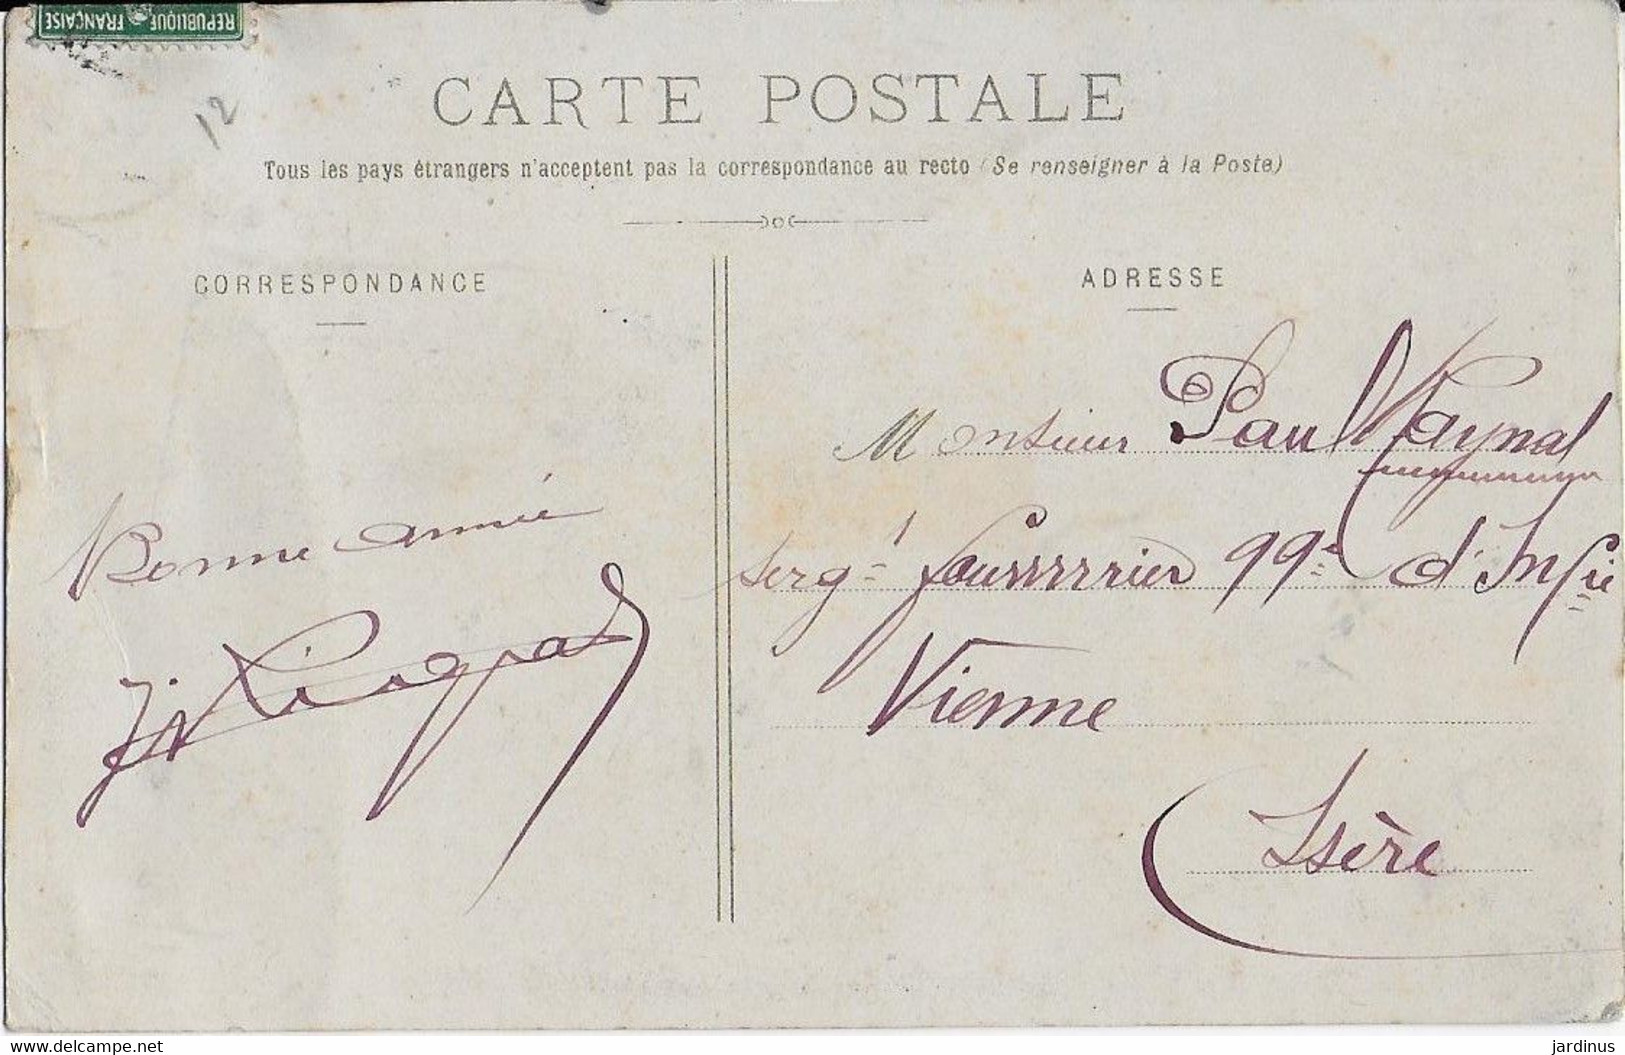 REPUBLIQUE FRANÇAISE
12
CARTE POSTALE
Tous les pays étrangers n'acceptent pas la correspondance au recto (Se renseigner à la Poste)
CORRESPONDANCE
ADRESSE
Bonne année
Monsieur Paul Raynal
sergt fourrrrrier 99e d'Infie
Vienne
Isère
www.delcampe.net
jardinus